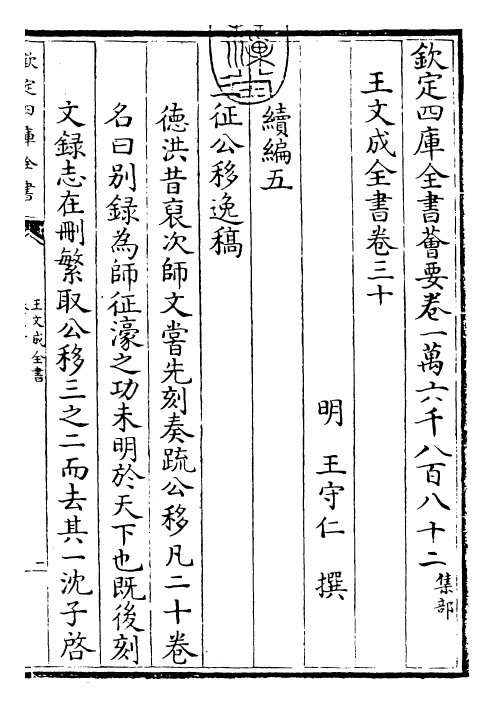 欽定四庫全書薈要卷一萬六千八百八十二 集部
王文成全書卷三十
明 王守仁 撰
續編五
征公移逸稿
德洪昔裒次師文嘗先刻奏疏公移凡二十卷
名曰别録為師征濠之功未明於天下也既後刻
文録志在刪繁取公移三之二而去其一沈子啓
欽定四庫全書
王文成全書